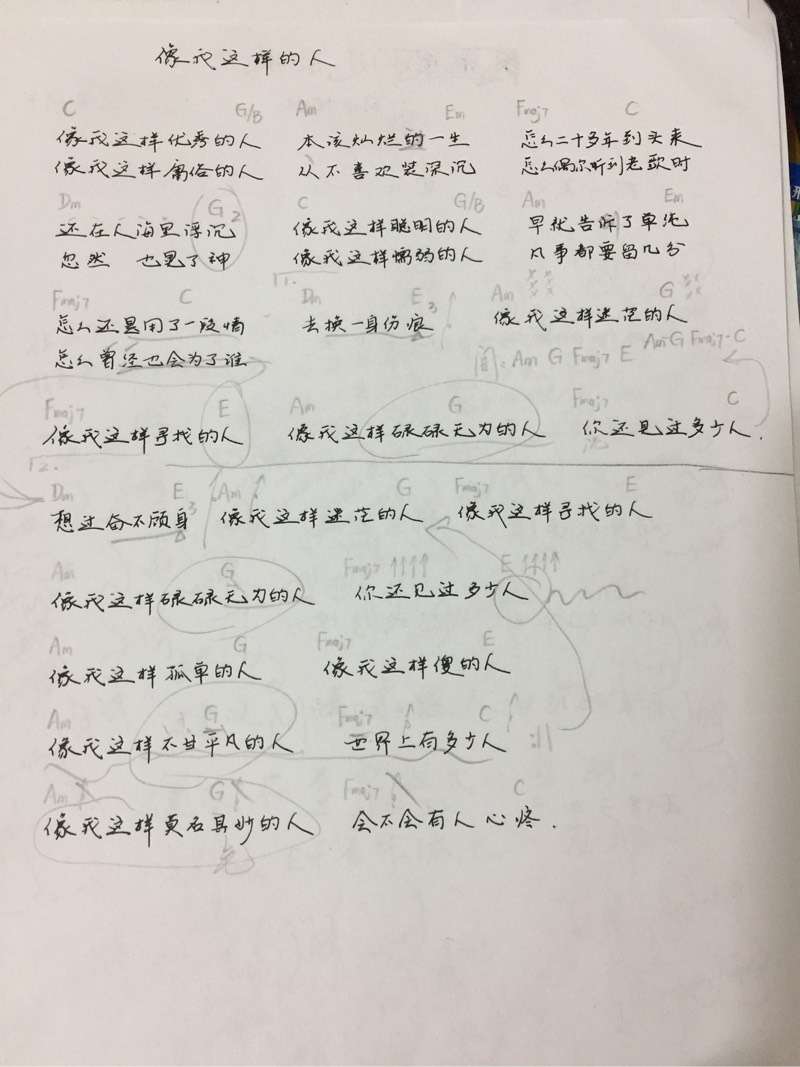 像我这样的人
C G/B Am Em Fmaj7 C
像我这样优秀的人 本该灿烂的一生 怎么二十多年到头来
像我这样庸俗的人 从不喜欢装深沉 怎么偶尔听到老歌时
Dm G 2 C G/B Am Em
还在人海里浮沉 像我这样聪明的人 早就告诉了单纯
忽然 也晃了神 像我这样懦弱的人 凡事都要留几分
Fmaj7 C Dm E 3 Am G
怎么还是用了一段情 去换一身伤痕 像我这样迷茫的人
怎么曾经也会为了谁
间: Am G Fmaj7 E Am G Fmaj7 - C
Fmaj7 E Am G Fmaj7 C
像我这样寻找的人 像我这样碌碌无为的人 你还见过多少人.
Dm E 3 Am G Fmaj7 E
想过奋不顾身 像我这样迷茫的人 像我这样寻找的人
Am G Fmaj7 ↑↑↑↑ E ↑↑↑↑
像我这样碌碌无为的人 你还见过多少人
Am G Fmaj7 E
像我这样孤单的人 像我这样傻的人
Am G Fmaj7 C
像我这样不甘平凡的人 世界上有多少人 :||
Am G Fmaj7 C
像我这样莫名其妙的人 会不会有人心疼.